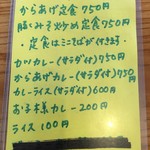 からあげ定食 750円
豚みそ炒め定食750円
・定食はミニそばが付きます
カツカレー(サラダ付)950円
からあげカレー(サラダ付)950円
カレーライス(サラダ付)600円
お子様カレー 200円
ライス 100円